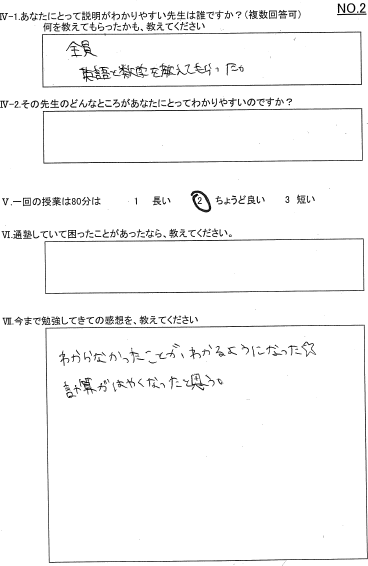 NO.2
Ⅳ-1.あなたにとって説明がわかりやすい先生は誰ですか？(複数回答可)
何を教えてもらったかも、教えてください
全員
英語と数学を教えてもらったか
Ⅳ-2.その先生のどんなところがあなたにとってわかりやすいのですか？
Ⅴ.一回の授業は80分は 1 長い 2 ちょうど良い 3 短い
Ⅵ.通塾していて困ったことがあったなら、教えてください。
Ⅶ.今まで勉強してきての感想を、教えてください
わからなかったことが、わかるようになった☆
計算がはやくなったと思う。